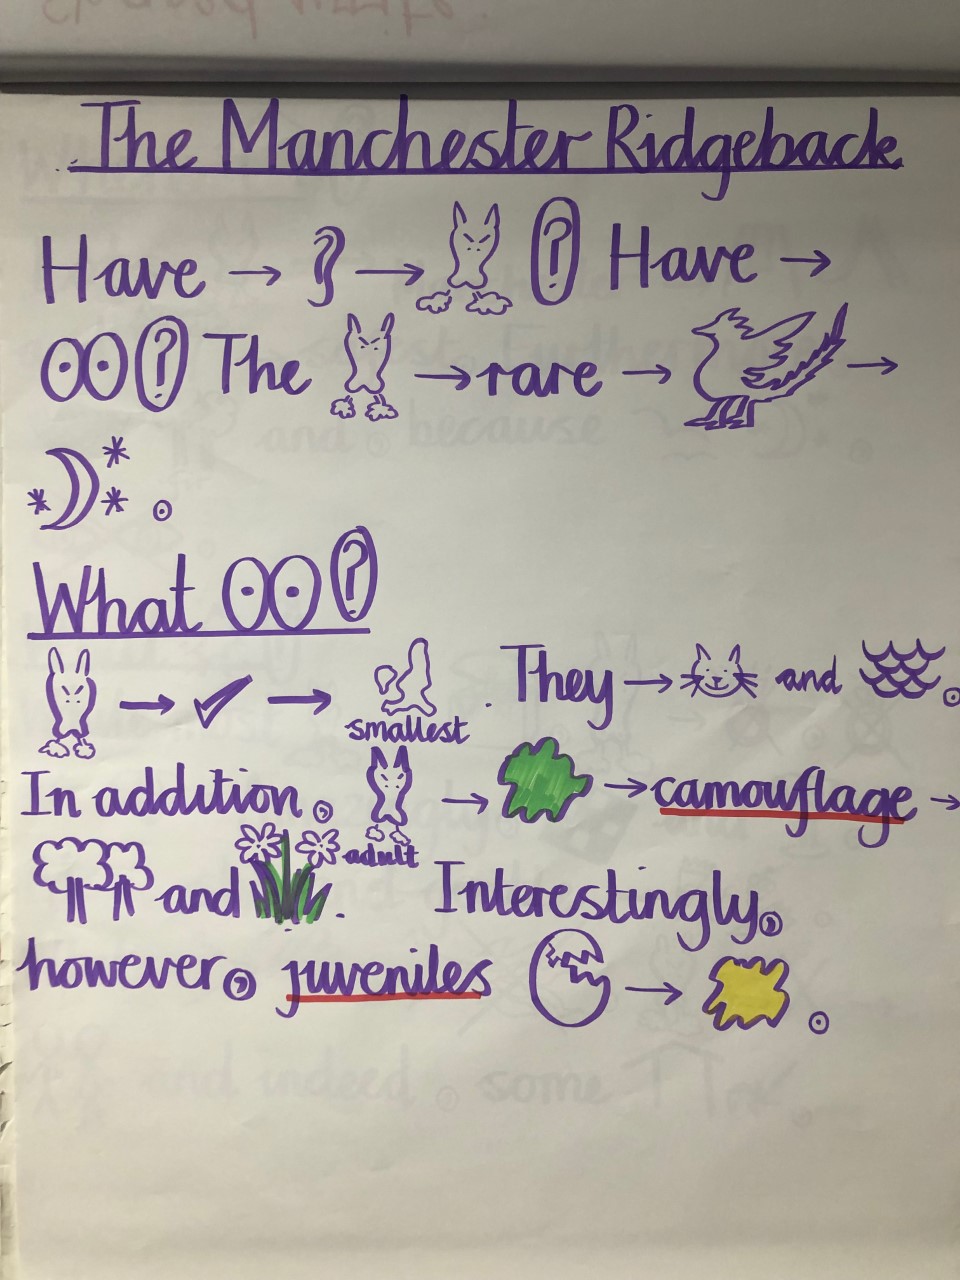 The Manchester Ridgeback
Have → ? → ? Have →
? The → rare → →
.
What ?
→ ✓ → smallest . They → and .
In addition, adult → → camouflage →
and . Interestingly,
however, juveniles → .